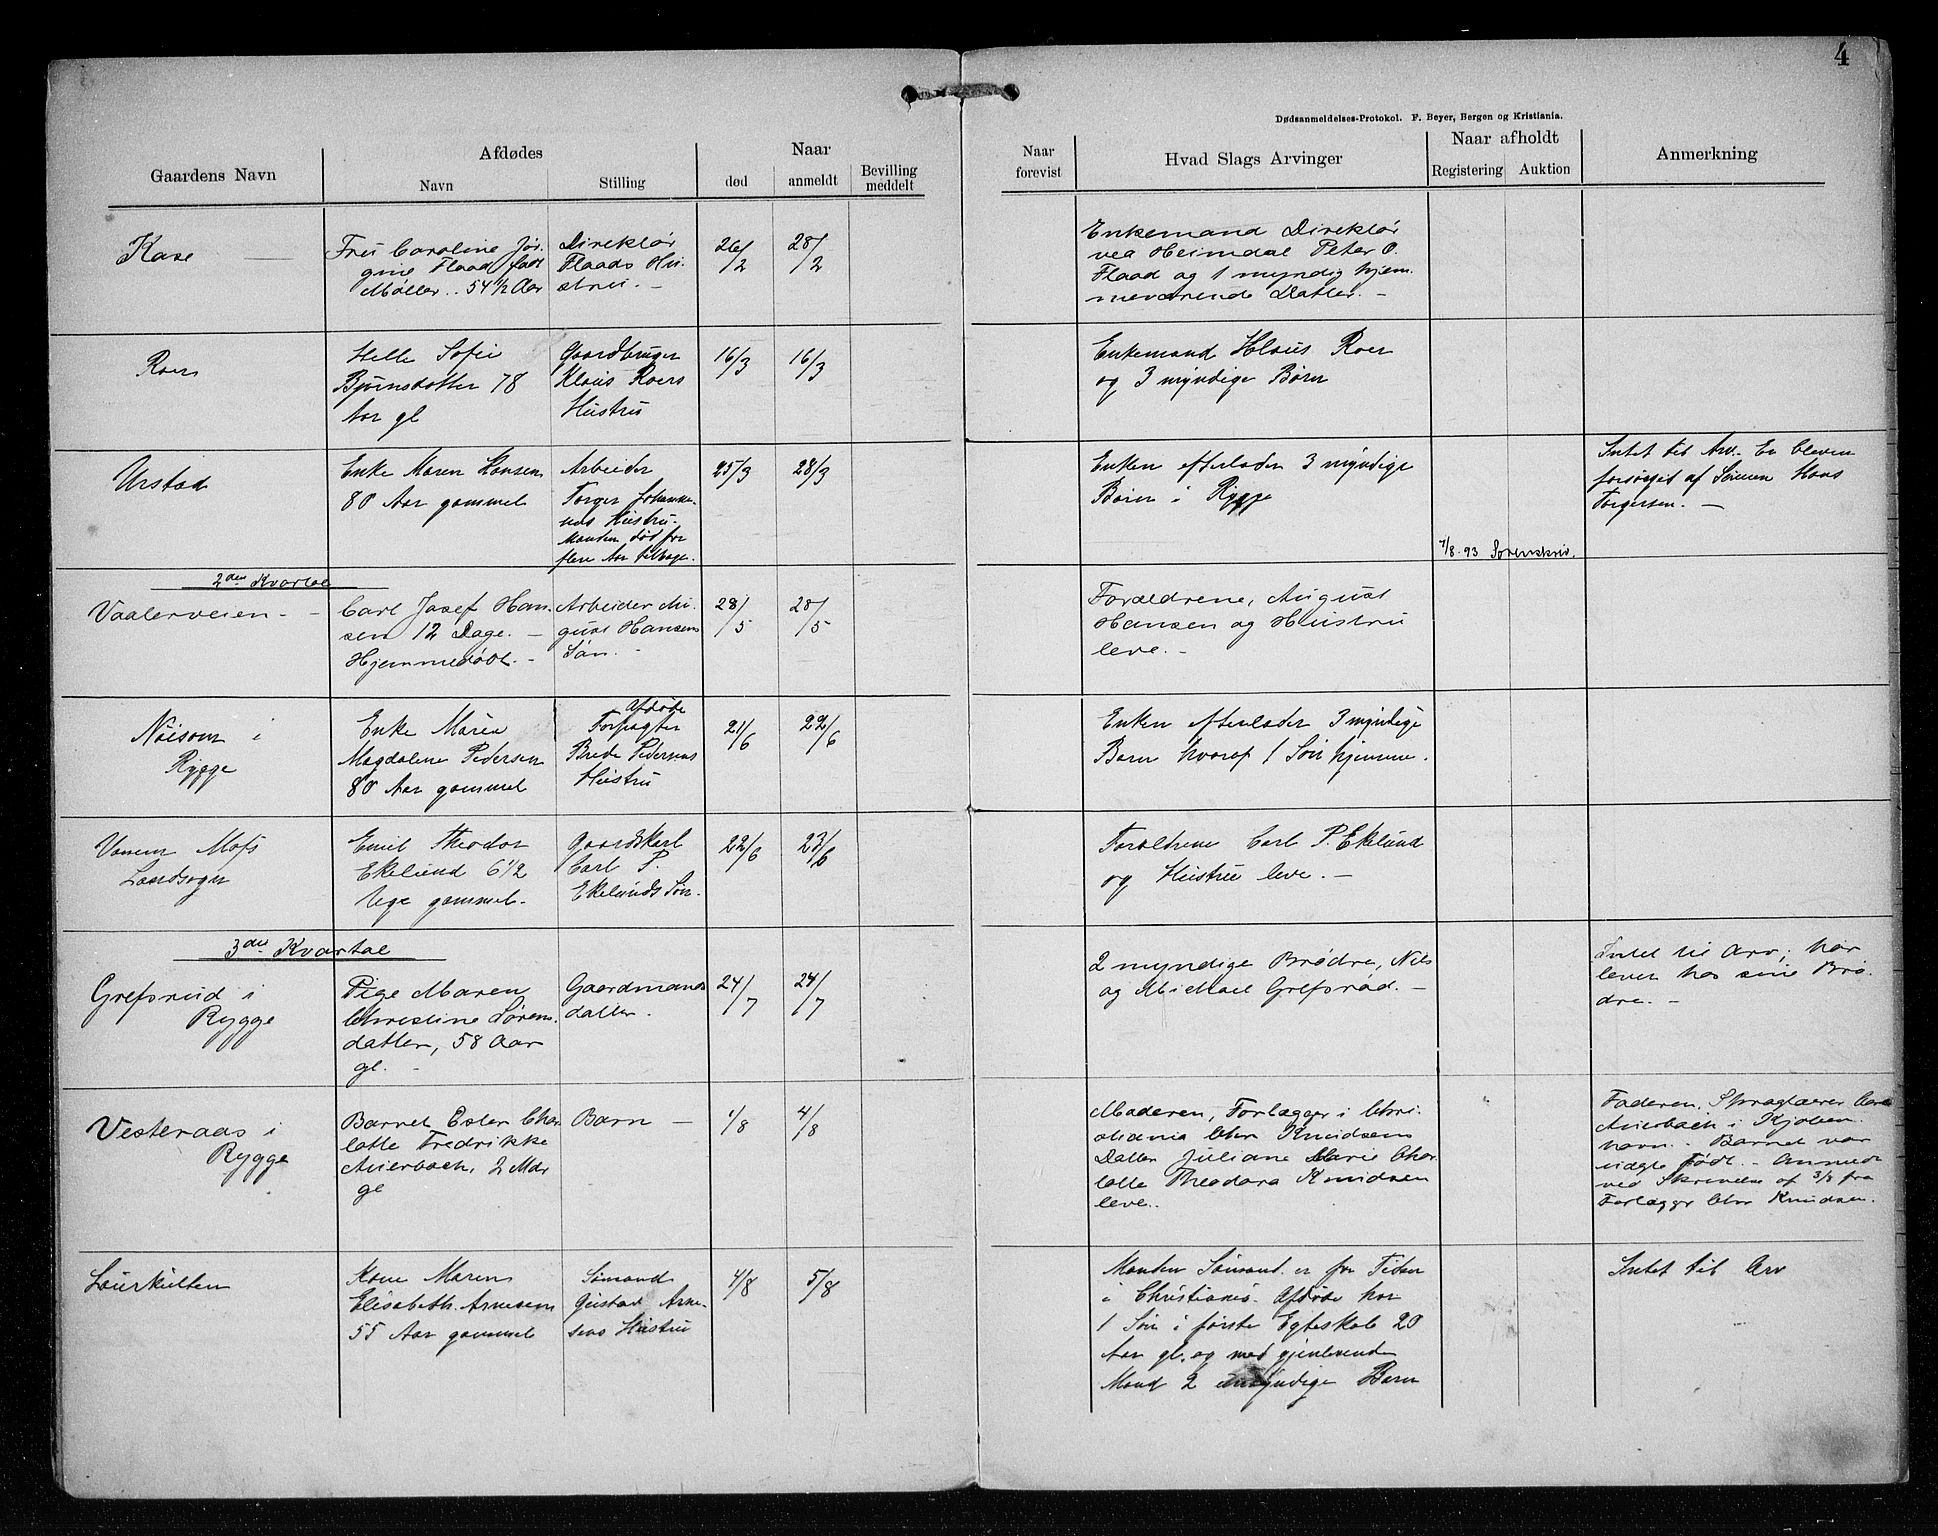 4
Dødsanmeldelses-Protokol. F. Beyer, Bergen og Kristiania.
Gaardens Navn
Afdødes
Navn
Stilling
Naar
død
anmeldt
Bevilling
meddelt
Naar
forevist
Hvad Slags Arvinger
Naar afholdt
Registering
Auktion
Anmerkning
Kase
Fru Caroline Jør-
gine Flaad født
Møller.. 54 1/2 Aar
Direktør
Flaads Hu-
stru. -
26/2
28/2
Enkemand Direktør
ved Heimdal Peter O.
Flaad og 1 myndig hjem-
meværende Datter. -
Roer
Helle Sofie
Bjørnsdatter 78
Aar gl
Gaardbruger
Klaus Roers
Hustru
16/3
16/3
Enkemand Klaus Roer
og 3 myndige Børn
Urstad
Enke Maren Hansen
80 Aar gammel
Arbeider
Torger Johannse-
nes Hustru.
Manden død for
flere Aar tilbage.
25/3
28/3
Enken efterlader 3 myndige
Børn i Rygge
7/8.93 Sorenskriv.
Intet til Arv. Er bleven
forsørget af Sønnen Hans
Torgersen. -
2den Kvartal
Vaalerveien -
Carl Josef Han-
sen 12 Dage. -
Hjemmedøbt. -
Arbeider Au-
gust Hansens
Søn. -
28/5
28/5
Forældrene, August
Hansen og Hustru
leve. -
Nøisom i
Rygge
Enke Maren
Magdalene Pedersen
80 Aar gammel
Afdøde
Forpagter
Brede Pedersens
Hustru
21/6
22/6
Enken efterlader 3 myndige
Børn hvoraf 1 Søn hjemme.
Vanem Mofs
Landsogn
Emil Theodor
Ekelund 6 1/2
Uge gammel.
Gaardskarl
Carl P.
Ekelunds Søn.
22/6
23/6
Forældrene Carl P. Ekelund
og Hustru leve. -
3die Kvartal
Grefsrud i
Rygge
Pige Maren
Christine Sørens-
datter, 58 Aar
gl. -
Gaardmands
datter.
24/7
24/7
2 myndige Brødre, Nils
og Michael Grefsrød. -
Intet til Arv; har
levet hos sine Brø-
dre. -
Vesteraas i
Rygge
Barnet Ester Char-
lotte Fredrikke
Auerbach, 2 Mdr
gl
Barn -
1/8
4/8
Moderen, Forlægger i Chri-
stiania Chr Knudsens
Datter Juliane Marie Char-
lotte Theodora Knudsen
leve..
Faderen, Sproglærer
Auerbach i Kjøben-
havn. - Barnet var
uægte født. - Anmeldt
ved Skrivelse af 3/8 fra
Forlægger Chr Knudsen.
Laurkullen
Kone Maren
Elisabeth Arnesen
55 Aar gammel
Sømand
Gustav Arne-
sens Hustru
4/8
5/8
Manden Sømand er for Tiden
i Christiania. Afdøde har
1 Søn i første Egteskab 20
Aar gl. og med gjenlevende
Mand 2 umyndige Børn
Intet til Arv